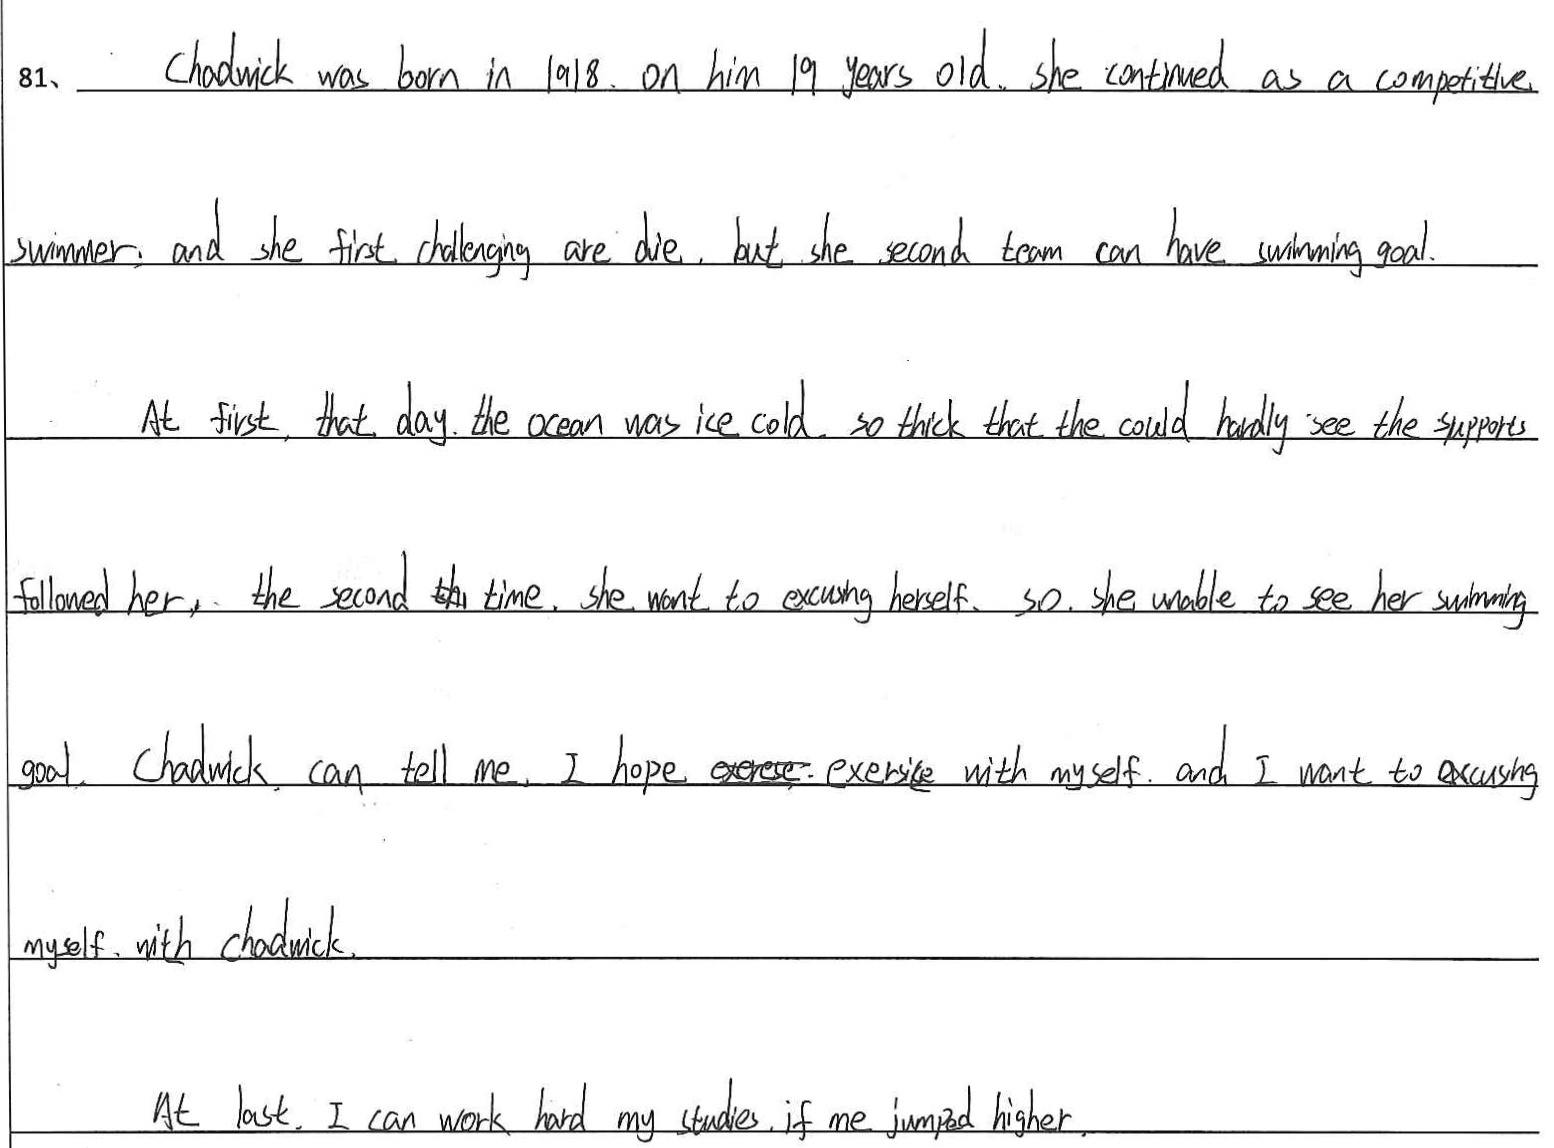 81、 Chadwick was born in 1918. on him 19 years old. she continued as a competitive
swimmer. and she first challenging are die. but she second team can have swimming goal.
At first, that day. the ocean was ice cold. so thick that the could hardly see the supports
followed her,. the second time. she want to excusing herself. so. she unable to see her swimming
goal. Chadwick can tell me. I hope exersice with myself. and I want to excusing
myself. with chadwick.
At last. I can work hard my studies. if me jumped higher.